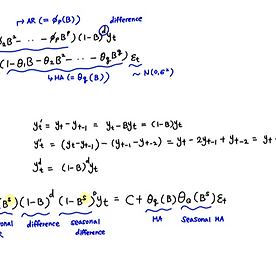 ↱ AR (= ϕp(B)) difference
ϕ₂B² - ··· - ϕpBᵖ)(1-B)ᵈyt
(1-θ₁B-θ₂B²- ··· -θqB^q)εt
↳ MA (= θq(B)) ~ N(0,σ²)
y't = yt - yt-1 = yt - Byt = (1-B)yt
y''t = (yt - yt-1) - (yt-1 - yt-2) = yt - 2yt-1 + yt-2 = yt
yᵈt = (1-B)ᵈyt
(Bˢ)(1-B)ᵈ(1-Bˢ)ᴰyt = C + θq(B)ΘQ(Bˢ)εt
difference seasonal difference MA seasonal MA